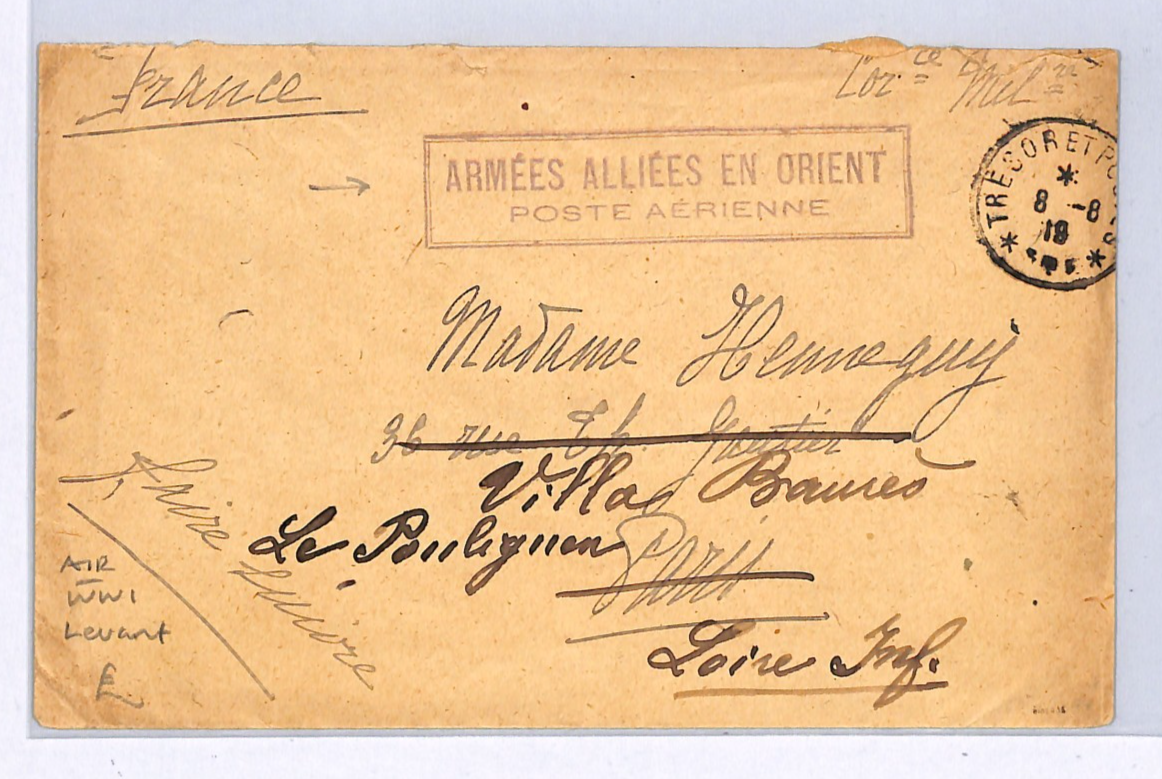 France
Cor ce Mil re
ARMÉES ALLIÉES EN ORIENT
POSTE AÉRIENNE
* TRÉSOR ET POSTES *
*
8 -8
19
Madame Henneguy
36 rue Th. Gautier
Villa Baurès
Le Pouliguen
Paris
Loire Inf.
Faire suivre
AIR
WWI
Levant
£